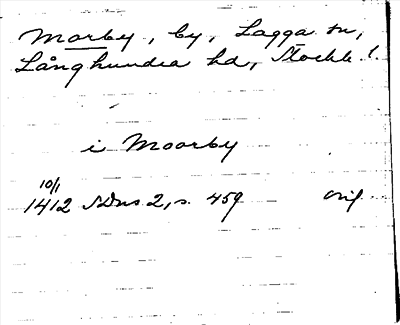 Morby, by, Lagga sn,
Långhundra hd, Stockh. l.
i Moorby
10/1
1412 SDns 2, s. 459 orig.